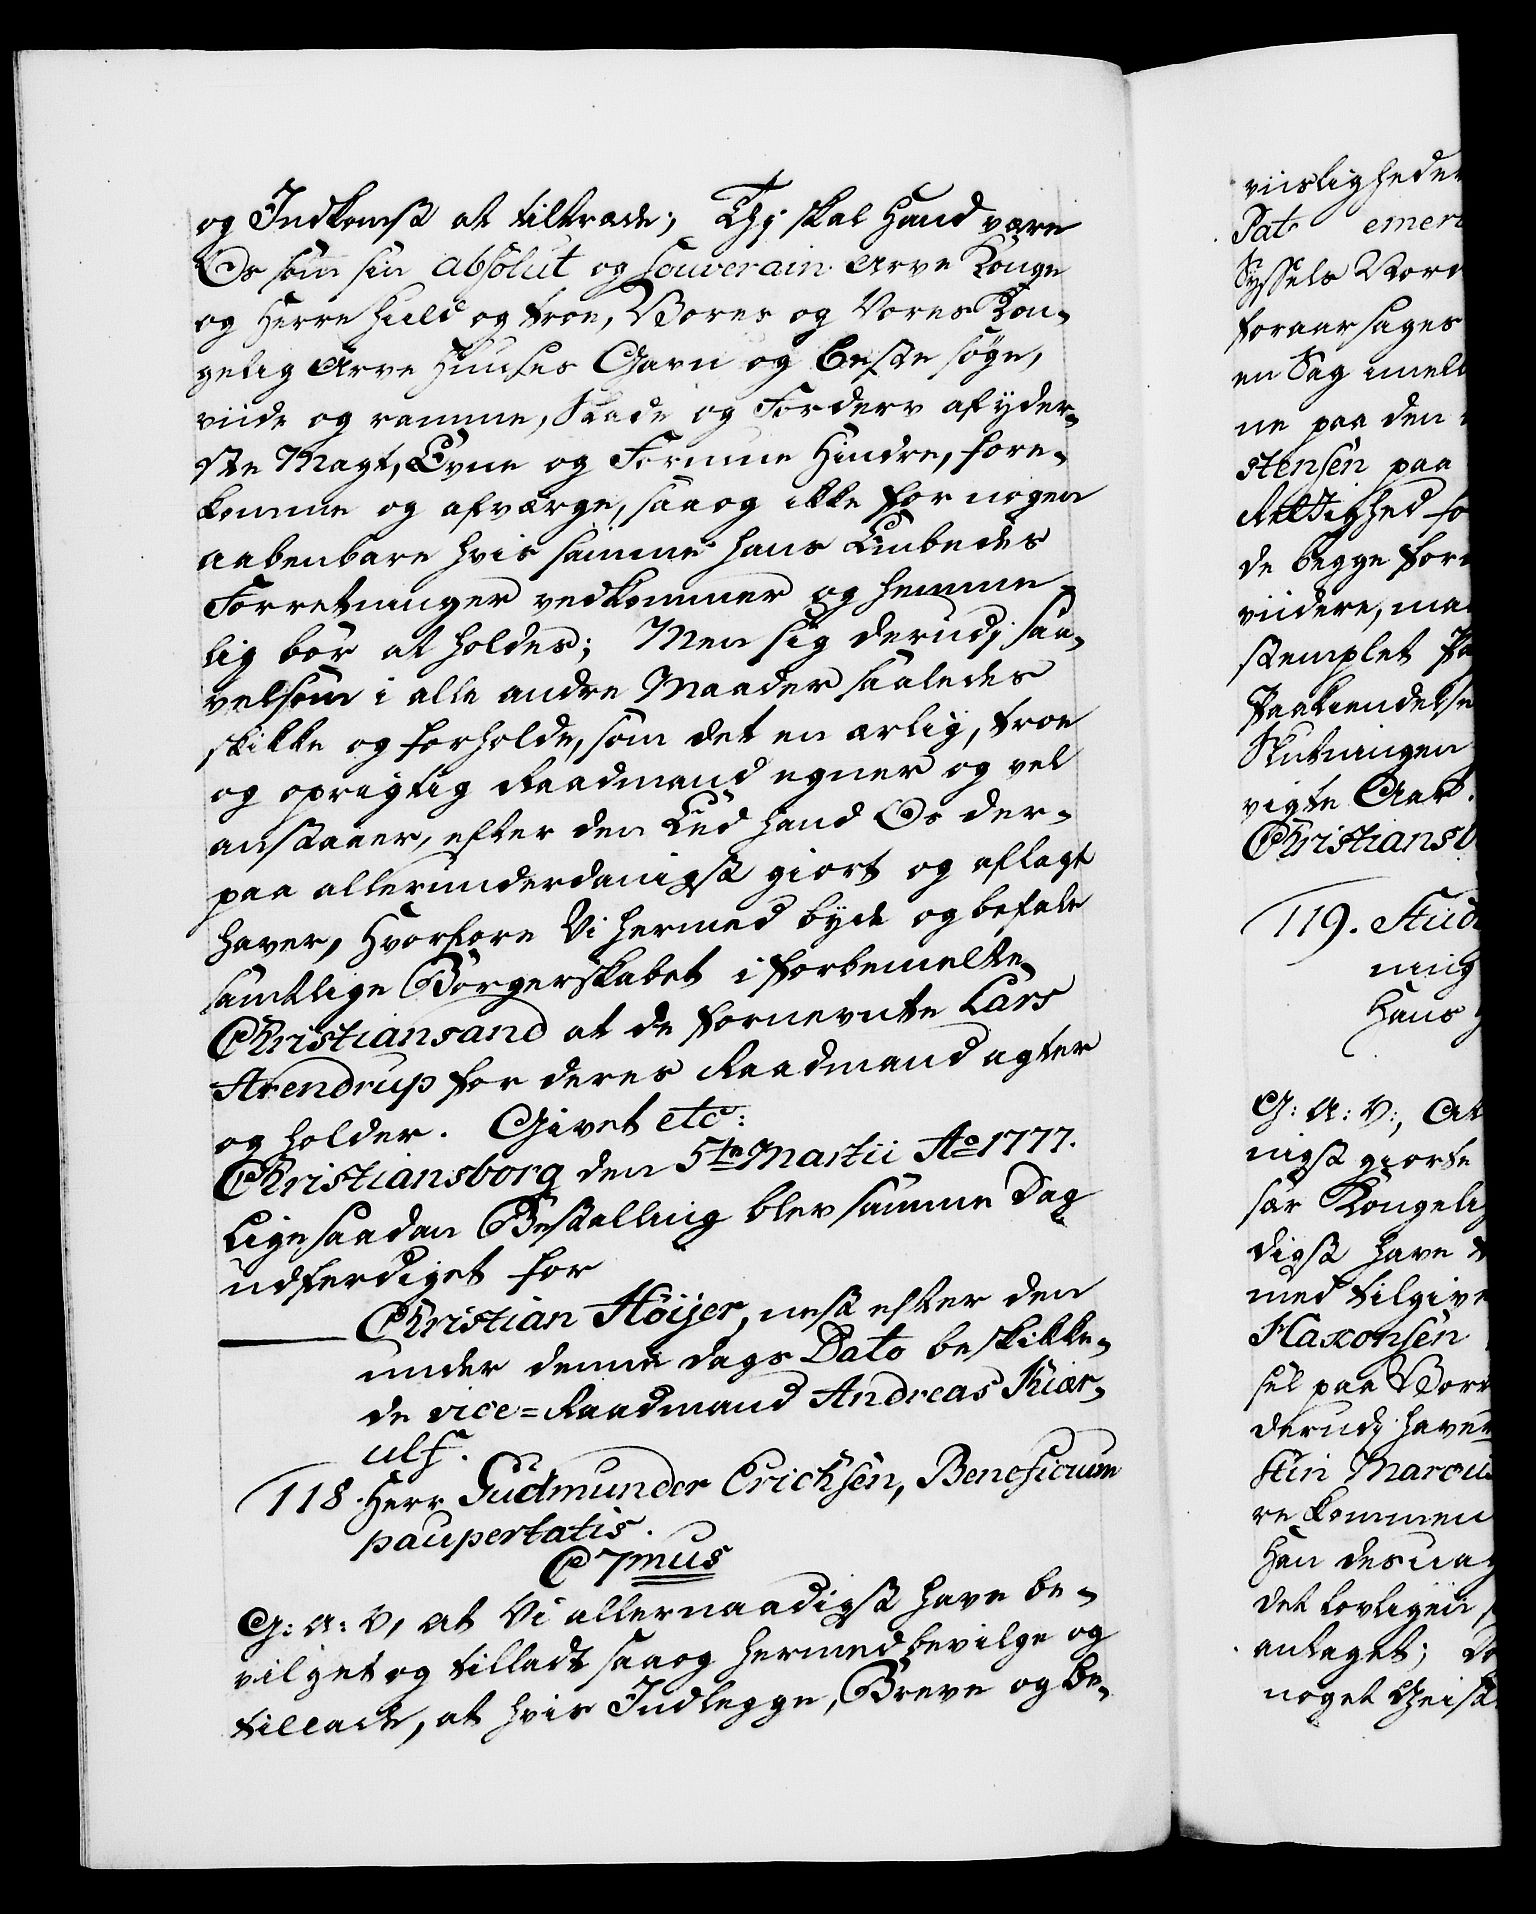 og Indkomst at tiltræde; Thj skal Hand være
Os som sin absolut og souverain Arve Konge
og Herre huld og troe, Vores og Vores Kon-
gelig Arve Huuses Gavn og beste søge,
viide og ramme, Skade og Forderv af yder-
ste Magt, Evne og Formue Hindre, fore-
komme og afværge, saa og ikke for nogen
aabenbare hvis samme hans Embedes
Forretninger vedkommer og hemme-
lig bør at holdes; Men sig derudj saa-
velsom i alle andre Maader saaledes
skikke og forholde, som det en ærlig, troe
og oprigtig Raadmand egner og vel
anstaaer, efter den Eed hand Os der-
paa allerunderdanigst giort og aflagt
haver, Hvorfore Vi hermed byde og befale
samtlige Borgerskabet i forbemelte
Christiansand at de fornevnte Lars
Arendrup for deres Raadmand agter
og holder. Givet etc:
Christiansborg den 5te Martii Ao 1777.
Lige saadan Bestalling blev samme Dag
udferdiget for
Christian Höijer, nest efter den
under denne dags Dato beskikke-
de vice=Raadmand Andreas Kiær-
ulf.
118. Herr Gudmunder Erichsen, Beneficium
paupertatis.
C 7mus
G: A: V, at Vi allernaadigst have be-
vilget og tilladt saa og hermed bevilge og
tillade, at hvis Indlegge, Breve og be-
viisligheder
Pat emeri
Syssels Nord
foraarsages
en Sag imell
ne paa den
stensen paa
Rettighed fo
de begge for
viidere, maa
stemplet Pa
Paakiendelse
Slutningen
vigte Aar.
Christiansb
119. Stud
ning
Hans
G: A: V:, At
nigst giorte
sær Kongelig
digst have
med tilgive
Haxonsen
sel paa Vor
derudj haver
stin Marcus
re kommen
Han desuag
det lovligen
antaget; Do
noget Geistl